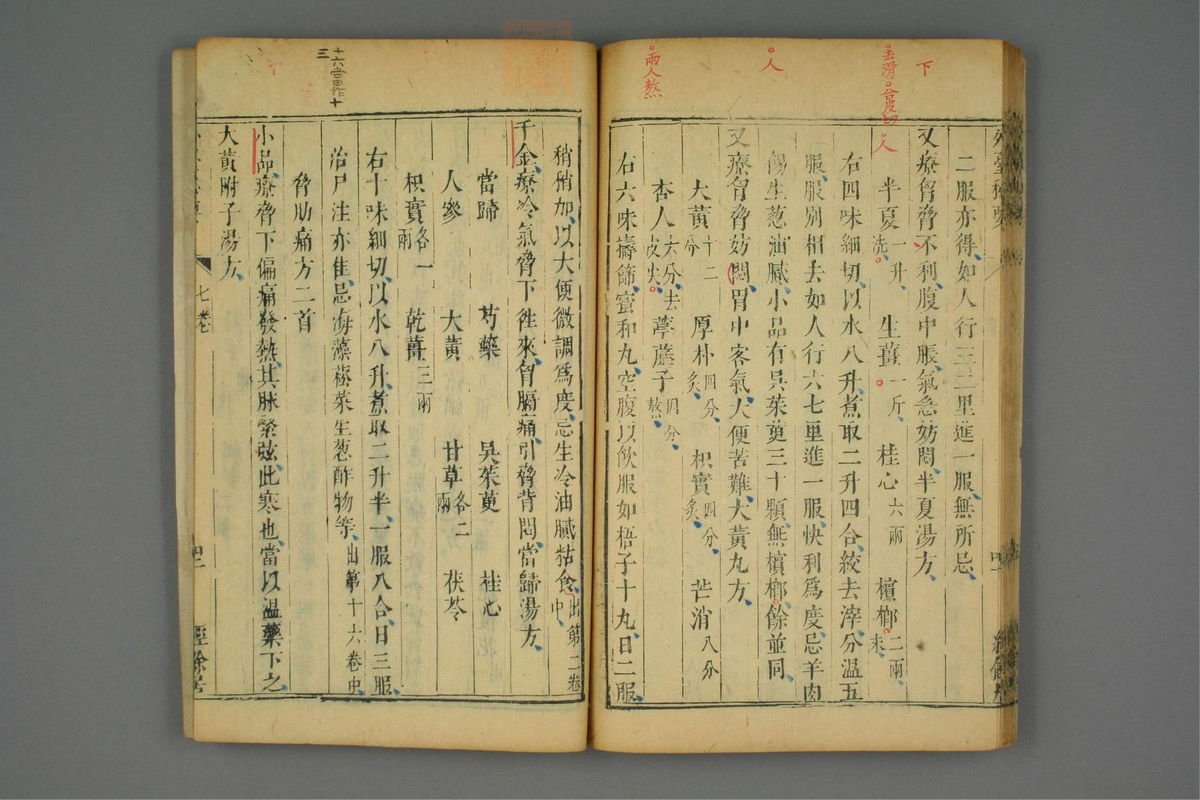 下
去滑。合皮切
人
人
兩人熬
外臺秘要
二服亦得、如人行三二里進一服、無所忌、
又療胷脅不利、腹中脹、氣急妨悶、半夏湯方、
半夏一升、洗 生薑一斤、 桂心六兩 檳榔二兩、末、
右四味細切、以水八升、煮取二升四合、絞去滓、分溫五
服、服別相去如人行六七里進一服、快利爲度、忌羊肉
餳生葱油膩、小品有吳茱萸三十顆、無檳榔、餘並同、
又療胷脅妨悶、胃中客氣、大便苦難、大黃丸方、
大黃十二分 厚朴四分、炙、 枳實四分、炙、 芒消八分
杏人六分、去皮尖 葶藶子四分、熬、
右六味擣篩、蜜和丸、空腹以飲服如梧子十九、日二服、
稍稍加、以大便微調爲度、忌生冷油膩粘食、出第二卷中、
千金、療冷氣脅下徃來、胷膈痛、引脅背悶、當歸湯方、
當歸 芍藥 吳茱萸 桂心
人參 大黃 甘草各二兩 茯苓
枳實各一兩 乾薑三兩
右十味細切、以水八升、煮取二升半、一服八合、日三服、
治尸注亦佳、忌海藻菘菜生葱酢物等、出第十六卷中
脅肋痛方二首
小品、療脅下偏痛發熱、其脉緊弦、此寒也、當以温藥下之、
大黃附子湯方、
十六當作十三
七卷
四二
經餘居